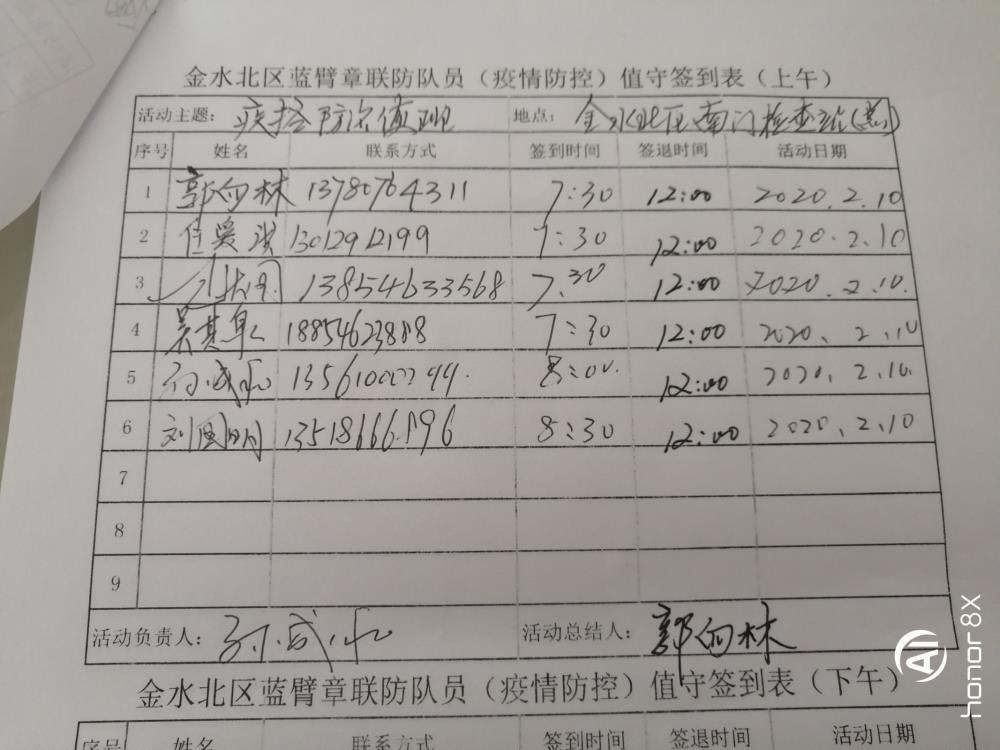 金水北区蓝臂章联防队员（疫情防控）值守签到表（上午）
活动主题： 疫控防治值班 地点： 金水北区南门检查站
序号 姓名 联系方式 签到时间 签退时间 活动日期
1 郭向林 13780764311 7:30 12:00 2020.2.10
2 13012912199 7:30 12:00 2020.2.10
3 13854633568 7.30 12:00 2020.2.10.
4 吴其 18854623888 7:30 12:00 2020、2.10
5 孙成 1356100 8:00. 12:00 2020.2.10.
6 刘国明 13518666896 8:30 12:00 2020.2.10
7
8
9
活动负责人： 孙成 活动总结人： 郭向林
金水北区蓝臂章联防队员（疫情防控）值守签到表（下午）
序号 姓名 联系方式 签到时间 签退时间 活动日期
AI honor 8X